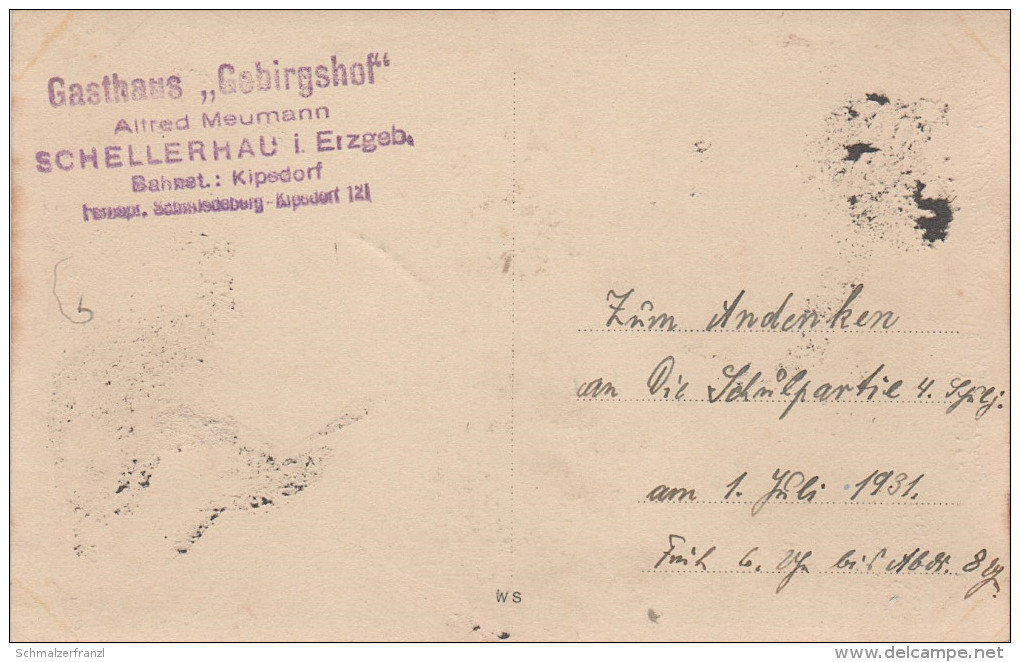 Gasthaus „Gebirgshof“
Alfred Meumann
SCHELLERHAU i. Erzgeb.
Bahnst.: Kipsdorf
Fernspr. Schmiedeberg-Kipsdorf 121
Zum Andenken
an Die Schulpartie 4. Schulj.
am 1. Juli 1931.
Früh 6. Uhr bis Abds. 8
WS
Schmalzerfranzl
delcampe.net